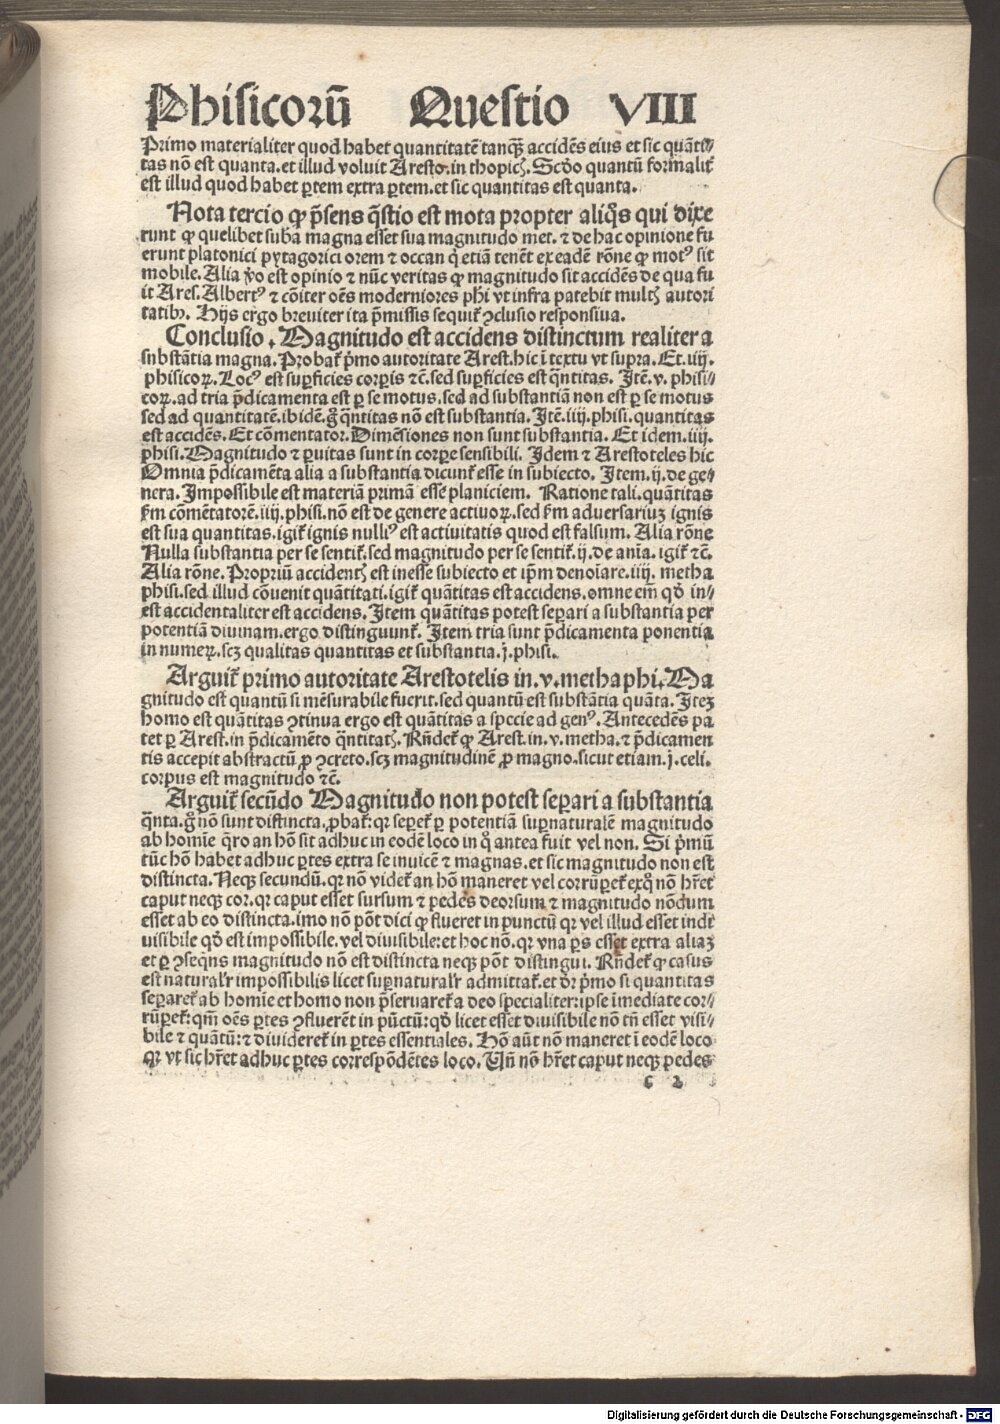 Phisicorū Questio VIII
Primo materialiter quod habet quantitatē tanqꝫ accidēs eius et sic quāti⸗
tas nō est quanta. et illud voluit Aresto. in thopicꝭ. Scd̄o quantū formalit̄
est illud quod habet ꝑtem extra ꝑtem. et sic quantitas est quanta.
Nota tercio ꝙ p̄sens q̄stio est mota propter aliq̊s qui dixe
runt ꝙ quelibet suba magna esset sua magnitudo met. ⁊ de hac opinione fu
erunt platonici pytagorici orem ⁊ occan q̇ etiā tenēt ex eadē rōne ꝙ motꝰ sit
mobile. Alia v̄o est opinio ⁊ nūc veritas ꝙ magnitudo sit accidēs de qua fu
it Ares. Albertꝰ ⁊ cōiter oēs moderniores phi vt infra patebit multꝭ autori
tatibꝰ. Hijs ergo breuiter ita p̄missis sequit̄ ꝯclusio responsiua.
Conclusio. Magnitudo est accidens distinctum realiter a
substātia magna. Probat̄ p̄mo autoritate Arest. hic ī textu vt supra. Et. iiij.
phisicoꝝ. Locꝰ est suꝑficies corꝑis ⁊c̄. sed suꝑficies est q̄ntitas. Itē. v. phisi⸗
coꝝ. ad tria p̄dicamenta est ꝑ se motus. sed ad substantiā non est ꝑ se motus
sed ad quantitatē. ibidē. g̊ q̄ntitas nō est substantia. Itē. iiij. phisi. quantitas
est accidēs. Et cōmentator. Dimēsiones non sunt substantia. Et idem. iiij.
phisi. Magnitudo ⁊ ꝑuitas sunt in corꝑe sensibili. Idem ⁊ Arestoteles hic
Omnia p̄dicamēta alia a substantia dicunt̄ esse in subiecto. Item. ij. de ge⸗
nera. Impossibile est materiā primā esse planiciem. Ratione tali. quātitas
ẜm cōmētatorē. iiij. phisi. nō est de genere actiuoꝝ. sed ẜm aduersariuꝫ ignis
est sua quantitas. igit̄ ignis nulliꝰ est actiuitatis quod est falsum. Alia rōne
Nulla substantia per se sentit̄. sed magnitudo per se sentit̄. ij. de aīa. igit̄ ⁊c̄.
Alia rōne. Propriū accidentꝭ est inesse subiecto et ip̄m denoīare. iiij. metha
phisi. sed illud cōuenit quātitati. igit̄ quātitas est accidens. omne em̄ qd̄ in⸗
est accidentaliter est accidens. Item quātitas potest seꝑari a substantia per
potentiā diuinam. ergo distinguunt̄. Item tria sunt p̄dicamenta ponentia
in numeꝝ. scꝫ qualitas quantitas et substantia. j. phisi.
Arguit̄ primo autoritate Arestotelis in. v. metha phi. Ma
gnitudo est quantū si mēsurabile fuerit. sed quantū est substātia quāta. Iteꝫ
homo est quātitas ꝯtinua ergo est quātitas a specie ad genꝰ. Antecedēs pa
tet ꝑ Arest. in p̄dicamēto q̄ntitatꝭ. Rn̄det̄ ꝙ Arest. in. v. metha. ⁊ p̄dicamen
tis accepit abstractū ꝓ ꝯcreto. scꝫ magnitudinē ꝓ magno. sicut etiam. j. celi.
corpus est magnitudo ⁊c̄.
Arguit̄ secūdo Magnitudo non potest seꝑari a substantia
q̄nta. g̊ nō sunt distincta. ꝓbat̄: qꝛ seꝑet̄ ꝑ potentiā suꝑnaturalē magnitudo
ab homīe q̄ro an hō sit adhuc in eodē loco in q̊ antea fuit vel non. Si p̄mū
tūc hō habet adhuc ꝑtes extra se inuicē ⁊ magnas. et sic magnitudo non est
distincta. Neqꝫ secundū. qꝛ non videt̄ an hō maneret vel corrūperet̄ exq̊ nō hr̄et
caput neqꝫ cor. qꝛ caput esset sursum ⁊ pedes deorsum ⁊ magnitudo nōdum
esset ab eo distincta. imo nō pōt dici ꝙ flueret in punctū qꝛ vel illud esset indi
uisibile qd̄ est impossibile. vel diuisibile: et hoc nō. qꝛ vna ꝑs esset extra aliaꝫ
et ꝑ ꝯseq̄ns magnitudo nō est distincta neqꝫ pōt distingui. Rn̄det̄ ꝙ casus
est naturalr̄ impossibilis licet suꝑnaturalr̄ admittat̄. et dr̄ p̄mo si quantitas
seꝑaret̄ ab homīe et homo non p̄seruaret̄ a deo specialiter: ipse īmediate cor⸗
rūperet̄: qm̄ oēs ꝑtes ꝯfluerēt in pūctū: qd̄ licet esset diuisibile nō tn̄ esset visi⸗
bile ⁊ quātū: ⁊ diuideret̄ in ꝑtes essentiales. Hō aūt nō maneret ī eodē loco
qꝛ vt sic hr̄et adhuc ꝑtes correspōdētes loco. Vn̄ nō hr̄et caput neqꝫ pedes
c 2
Digitalisierung gefördert durch die Deutsche Forschungsgemeinschaft - DFG